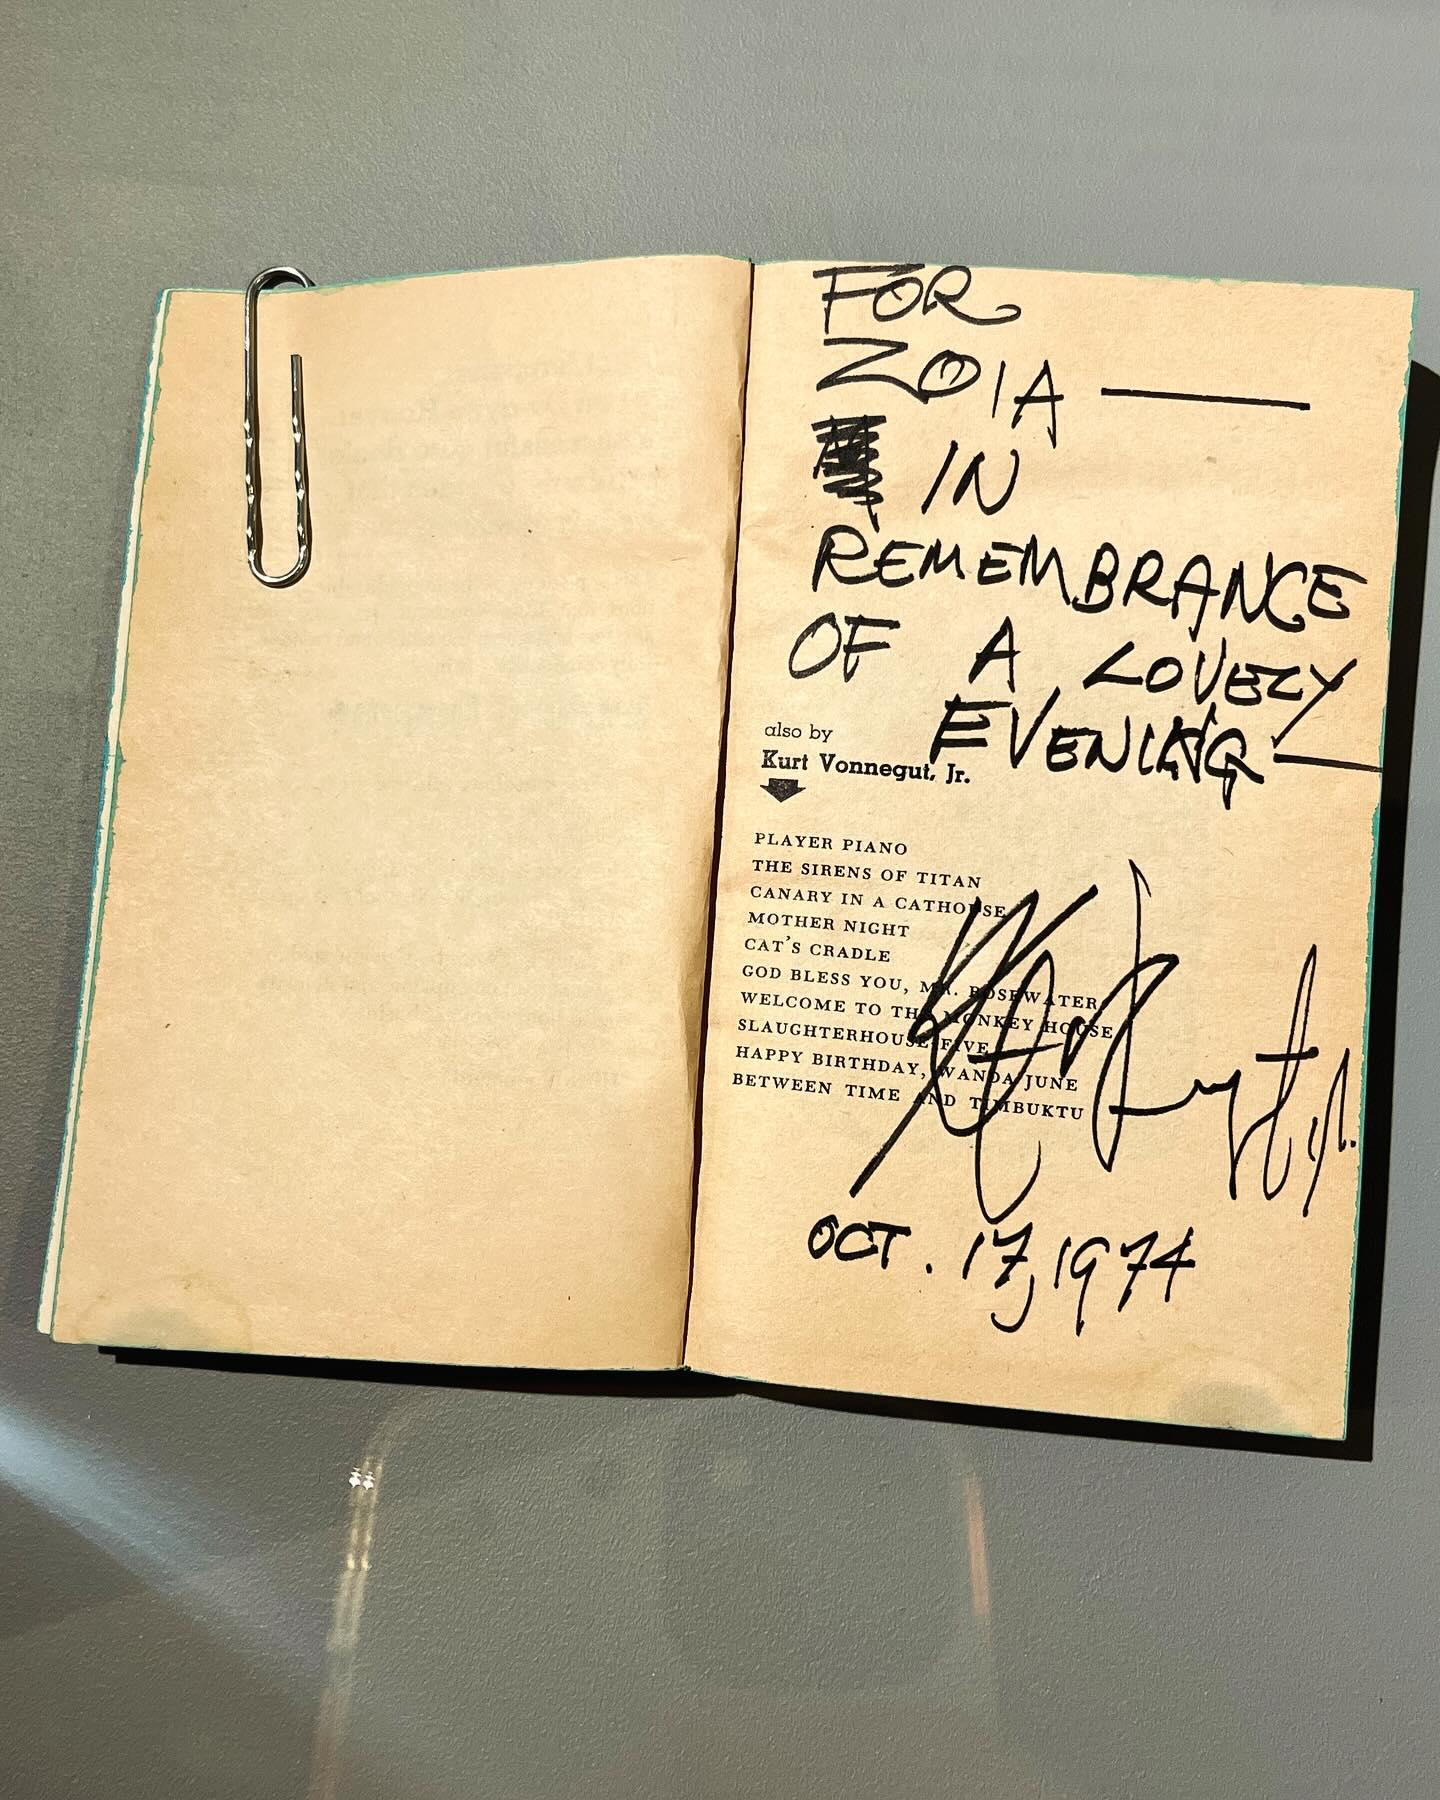 FOR
ZOIA —
IN
REMEMBRANCE
OF A LOVELY
EVENING —
also by
Kurt Vonnegut, Jr.
PLAYER PIANO
THE SIRENS OF TITAN
CANARY IN A CATHOUSE
MOTHER NIGHT
CAT'S CRADLE
GOD BLESS YOU, MR. ROSEWATER
WELCOME TO THE MONKEY HOUSE
SLAUGHTERHOUSE-FIVE
HAPPY BIRTHDAY, WANDA JUNE
BETWEEN TIME AND TIMBUKTU
Kurt Vonnegut Jr.
OCT. 17, 1974